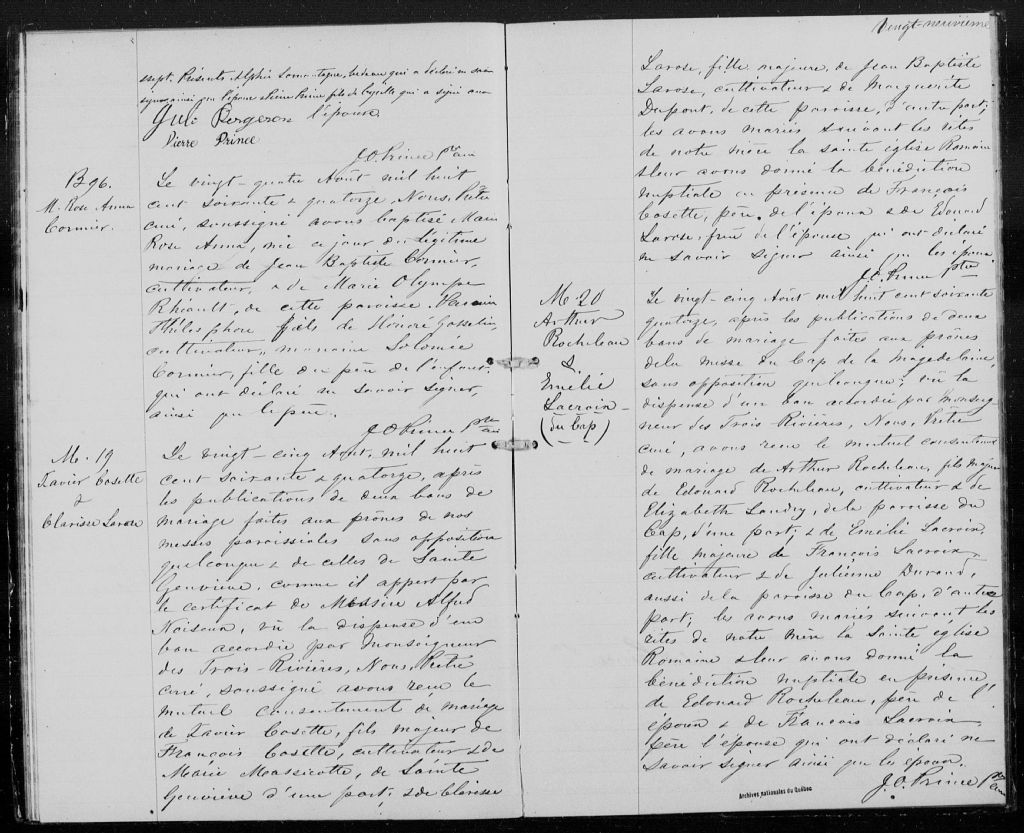 sept. Présents Alphée Lamontagne, bedeau qui a déclaré ne savoir
signer ainsi que l'épouse & Pierre Prince fils de Cyrille qui a signé avec
l'épouse
Jul. Bergeron
Pierre Prince
J. O. Prince Ptre curé
B 96.
M. Rose Anna
Cormier.
Le vingt-quatre Août mil huit
cent soixante & quatorze, Nous, Prêtre
curé, soussigné avons baptisé Marie
Rose Anna, née ce jour du légitime
mariage de Jean Baptiste Cormier,
cultivateur, & de Marie Olympe
Rhéault, de cette paroisse. Parrain
Thélesphore fils de Honoré Gosselin,
cultivateur, marraine Solomée
Cormier, fille du père de l'enfant,
qui ont déclaré ne savoir signer,
ainsi que le père.
J O Prince Ptre curé
M. 19
Xavier Cosette
&
Clarisse Larose
Le vingt-cinq Août, mil huit
cent soixante & quatorze, après
les publications de deux bans de
mariage faites aux prônes de nos
messes paroissiales sans opposition
quelconque & de celles de Sainte
Geneviève, comme il appert par
le certificat de Messire Alfred
Noiseux, vû la dispense d'un
ban accordée par Monseigneur
des Trois-Rivières, Nous, Prêtre
curé, soussigné avons reçu le
mutuel consentement de mariage
de Xavier Cosette, fils majeur de
François Cosette, cultivateur & de
Marie Massicotte, de Sainte
Geneviève d'une part; & de Clarisse
Vingt-neuvième
Larose, fille majeure, de Jean Baptiste
Larose, cultivateur & de Marguerite
Dupont, de cette paroisse, d'autre part;
les avons mariés suivant les rites
de notre mère la sainte église Romaine
& leur avons donné la bénédiction
nuptiale en présence de François
Cosette, père de l'époux & de Edouard
Larose, frère de l'épouse qui ont déclaré
ne savoir signer ainsi que les époux.
J. O. Prince Ptre
M. 20
Arthur
Rocheleau
&
Emélie
Lacroix
(du Cap)
Le vingt-cinq Août mil huit cent soixante
quatorze, après les publications de deux
bans de mariage faites aux prônes
de la messe du Cap de la Magdelaine,
sans opposition quelconque; vû la
dispense d'un ban accordée par Monseig
neur des Trois-Rivières, Nous, Prêtre
curé, avons reçu le mutuel consentement
de mariage de Arthur Rocheleau, fils majeur
de Edouard Rocheleau, cultivateur & de
Elizabeth Landry, de la paroisse du
Cap, d'une part; & de Emélie Lacroix,
fille majeure de François Lacroix,
cultivateur & de Julienne Durand,
aussi de la paroisse du Cap, d'autre
part; les avons mariés suivant les
rites de notre mère la Sainte église
Romaine & leur avons donné la
bénédiction nuptiale en présence
de Edouard Rocheleau, père de l'
époux & de François Lacroix
père l'épouse qui ont déclaré ne
savoir signer ainsi que les époux.
J. O. Prince Ptre curé
Archives nationales du Québec